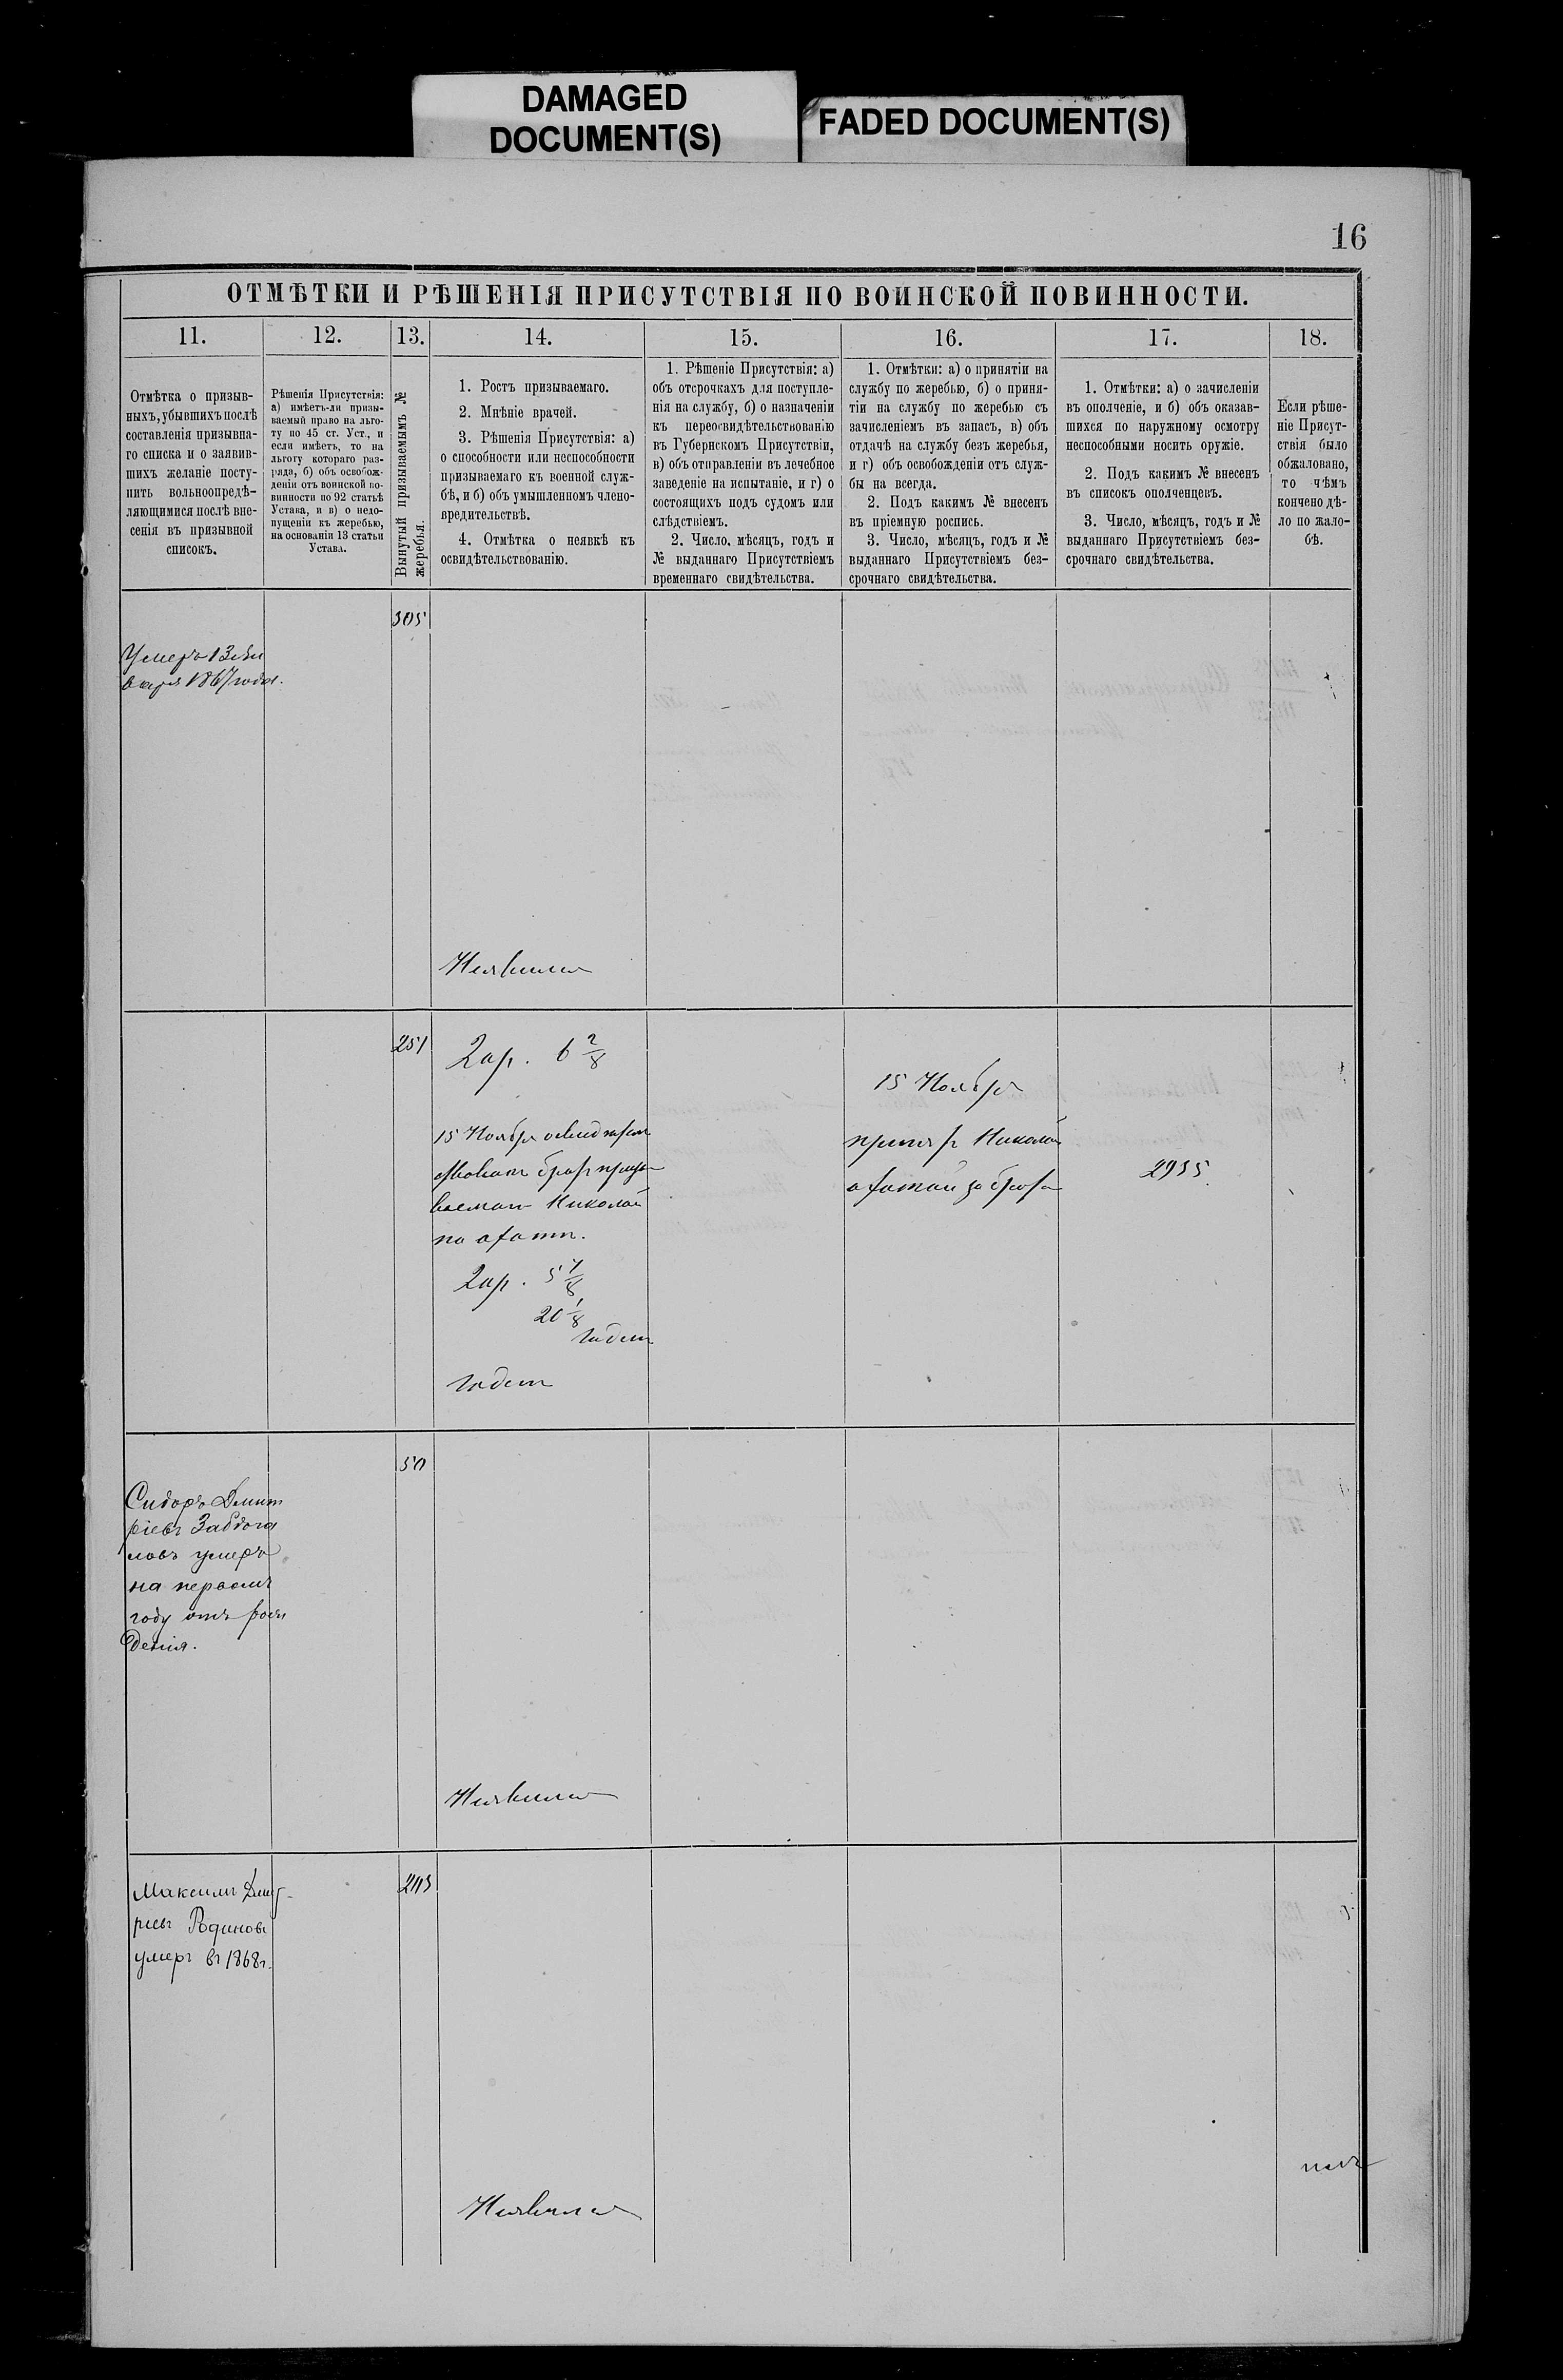 DAMAGED
DOCUMENT(S)
FADED DOCUMENT(S)
16
ОТМѢТКИ И РѢШЕНІЯ ПРИСУТСТВІЯ ПО ВОИНСКОЙ ПОВИННОСТИ.
11.
12.
13.
14.
15.
16.
17.
18.
Отмѣтка о призыв-
ныхъ, убывшихъ послѣ
составленія призывна-
го списка и о заявив-
шихъ желаніе посту-
пить вольноопредѣ-
ляющимися послѣ вне-
сенія въ призывной
списокъ.
Рѣшенія Присутствія:
а) имѣетъ-ли призы-
ваемый право на льго-
ту по 45 ст. Уст., и
если имѣетъ, то на
льготу котораго раз-
ряда, б) объ освобож-
деніи отъ воинской по-
винности по 92 статьѣ
Устава, и в) о недо-
пущеніи къ жеребью,
на основаніи 13 статьи
Устава.
Вынутый призываемымъ №
жеребья.
1. Ростъ призываемаго.
2. Мнѣніе врачей.
3. Рѣшенія Присутствія: а)
о способности или неспособности
призываемаго къ военной служ-
бѣ, и б) объ умышленномъ члено-
вредительствѣ.
4. Отмѣтка о неявкѣ къ
освидѣтельствованію.
1. Рѣшеніе Присутствія: а)
объ отсрочкахъ для поступле-
нія на службу, б) о назначеніи
къ переосвидѣтельствованію
въ Губернскомъ Присутствіи,
в) объ отправленіи въ лечебное
заведеніе на испытаніе, и г) о
состоящихъ подъ судомъ или
слѣдствіемъ.
2. Число. мѣсяцъ, годъ и
№ выданнаго Присутствіемъ
временнаго свидѣтельства.
1. Отмѣтки: а) о принятіи на
службу по жеребью, б) о приня-
тіи на службу по жеребью съ
зачисленіемъ въ запасъ, в) объ
отдачѣ на службу безъ жеребья,
и г) объ освобожденіи отъ служ-
бы на всегда.
2. Подъ какимъ № внесенъ
въ пріемную роспись.
3. Число, мѣсяцъ, годъ и №
выданнаго Присутствіемъ без-
срочнаго свидѣтельства.
1. Отмѣтки: а) о зачисленіи
въ ополченіе, и б) объ оказав-
шихся по наружному осмотру
неспособными носить оружіе.
2. Подъ какимъ № внесенъ
въ списокъ ополченцевъ.
3. Число, мѣсяцъ, годъ и №
выданнаго Присутствіемъ без-
срочнаго свидѣтельства.
Если рѣше-
ніе Присут-
ствія было
обжаловано,
то чѣмъ
кончено дѣ-
ло по жало-
бѣ.
305
Умеръ 13 Ян
варя 1867 года.
Неявился
251
2 ар. 6 2/8
15 Ноября
Николай
по охотѣ.
2 ар. 5 7/8
20 1/8
Годенъ
Годенъ
15 Ноября
Николай
охотой за брата
2955.
50
Сидоръ Дмит
ріевъ
умеръ
на первомъ
году отъ рож
денія.
Неявился
Максимъ Дмит-
ріевъ Родинов
умеръ въ 1868 г.
Неявился